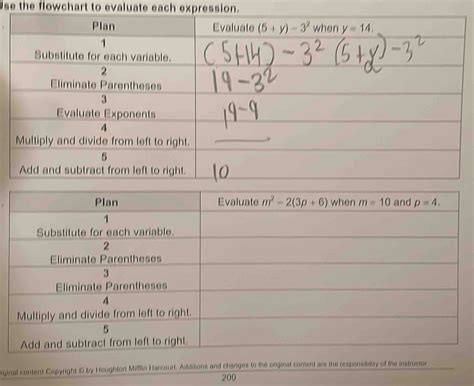 Use the flowchart to evaluate each expression.
Plan
Evaluate (5 + y) − 3² when y = 14.
1
Substitute for each variable.
(5+14) − 3² (5+y) − 3²
2
Eliminate Parentheses
19 − 3²
3
Evaluate Exponents
19 − 9
4
Multiply and divide from left to right.
5
Add and subtract from left to right.
10
Plan
Evaluate m² − 2(3p + 6) when m = 10 and p = 4.
1
Substitute for each variable.
2
Eliminate Parentheses
3
Eliminate Parentheses
4
Multiply and divide from left to right.
5
Add and subtract from left to right.
original content Copyright © by Houghton Mifflin Harcourt. Additions and changes to the original content are the responsibility of the instructor.
200